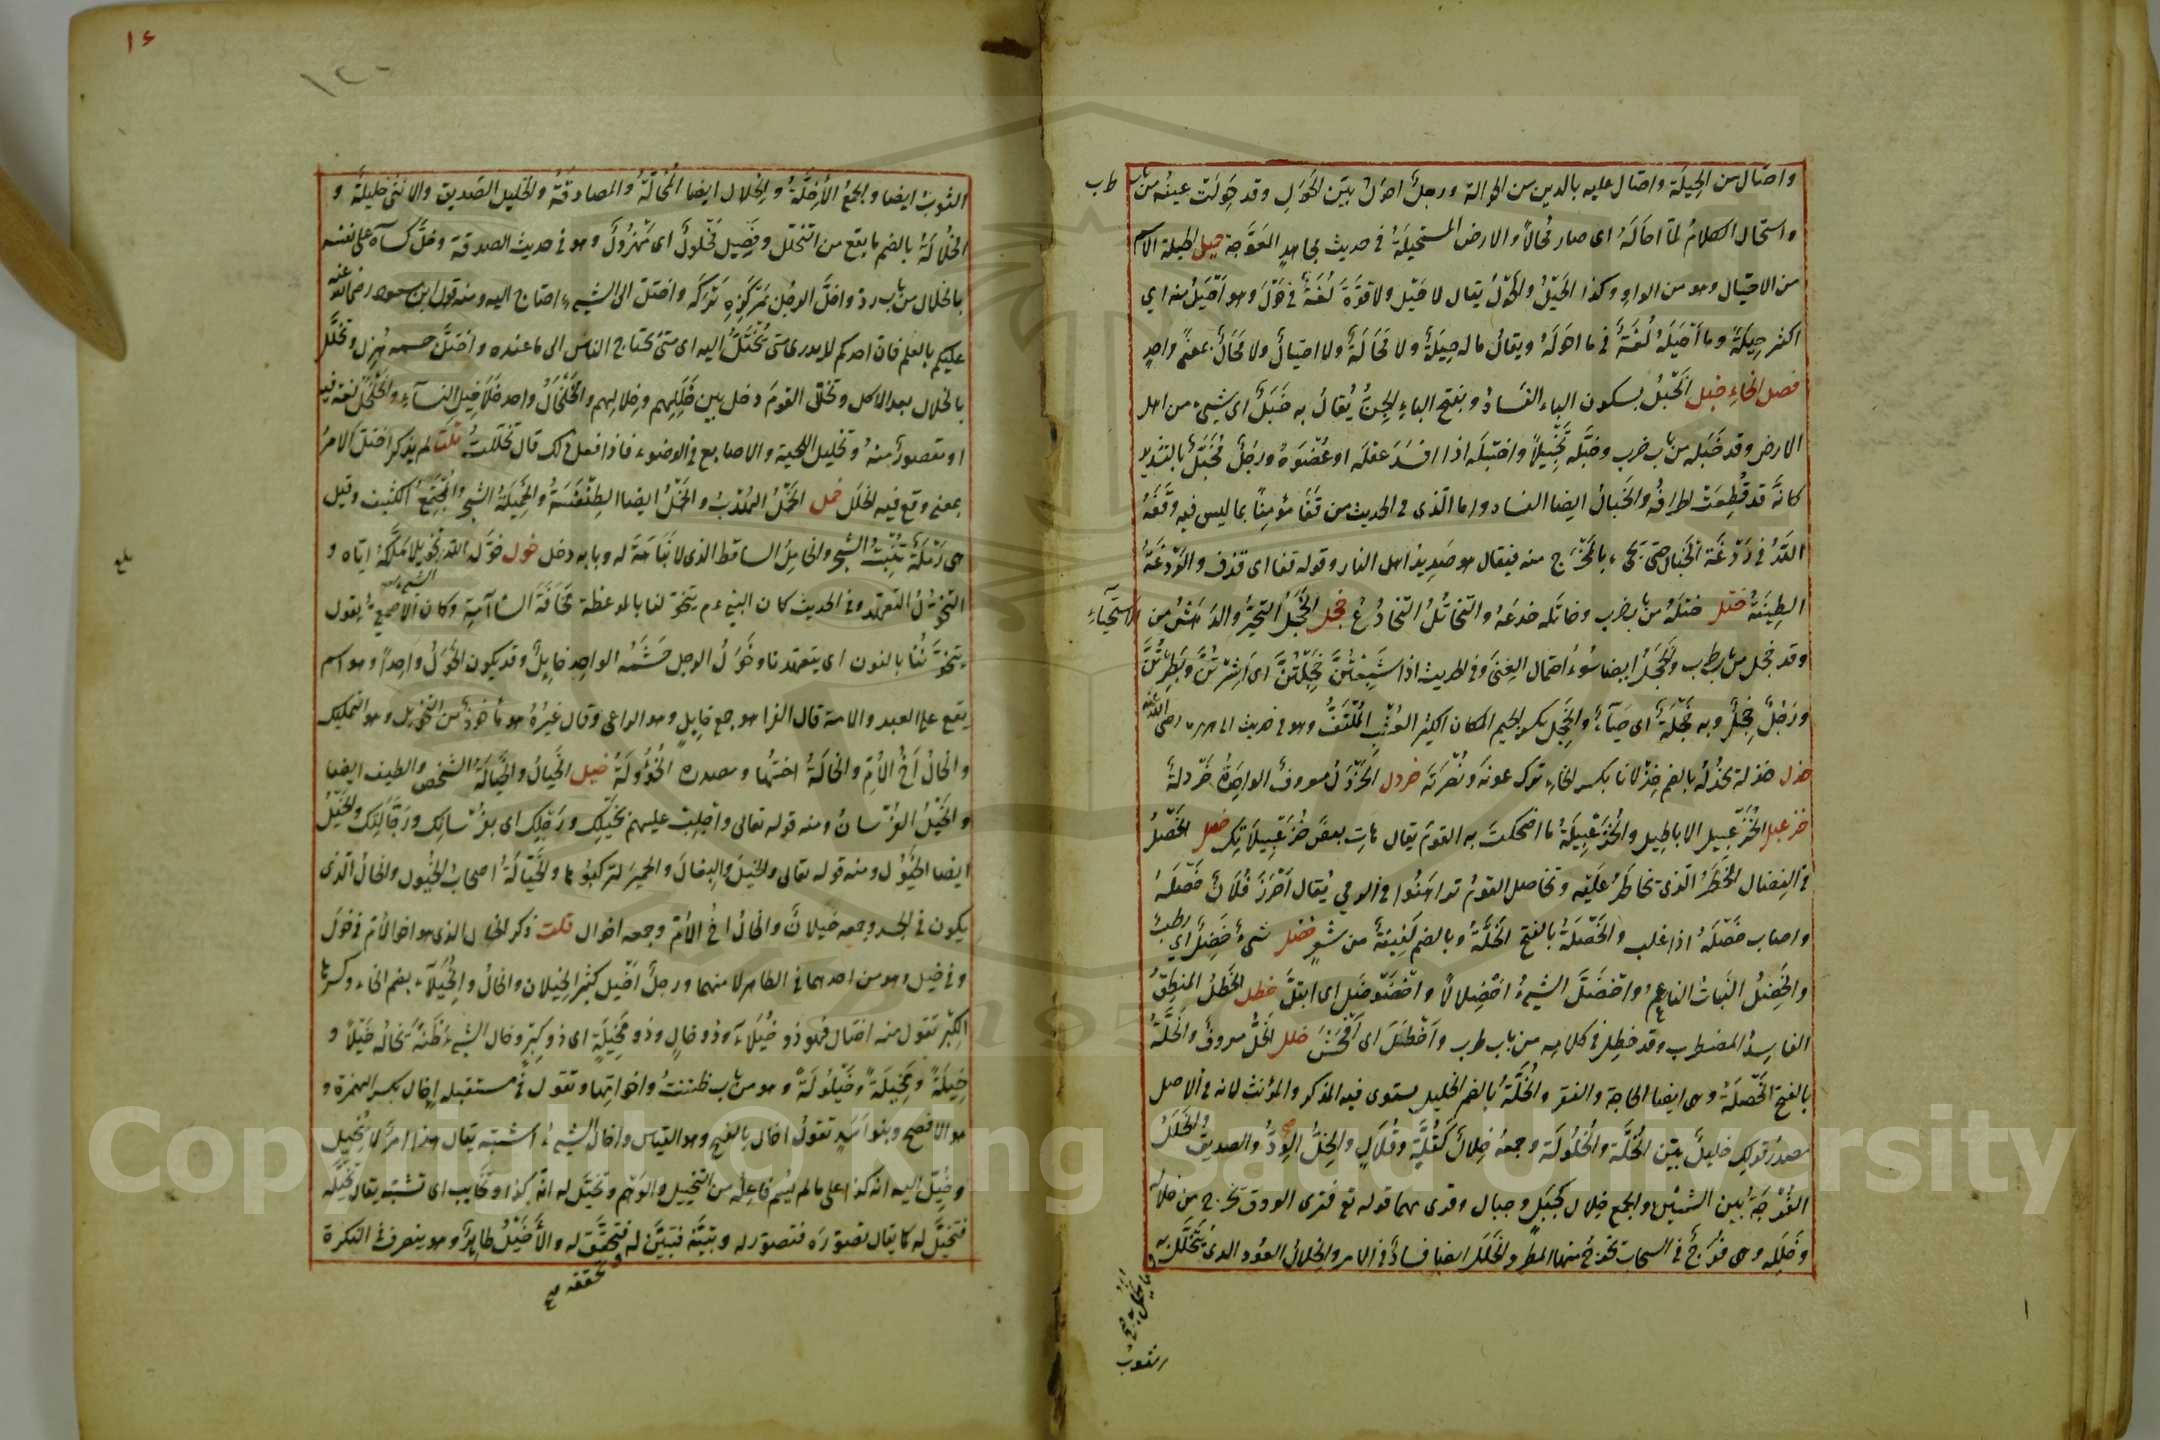 واحتال من الحِيلَة واحتال عليه بالدين من الحوالة ورجلٌ احوَلُ بَيِّن الحَوَلِ وقد حَوِلَتْ عينُه من باب طرب
واستحال الكلامُ لمّا احالَهُ اى صار مُحالاً والارض المستحيلَةُ فى حديث مجاهدٍ المُعَوَّجة حيل الحيلة الاسم
من الاحتيال وهو من الواو وكذا الحَيْلُ والحَوْلُ يقال لا حَيْل ولا قوَّةَ لُغَةٌ فى حَوْلَ وهو أَحْيَلُ منه اى
اكثر حِيلَةً وما أَحْيَلَهُ لُغَةٌ فى ما احوَلَهُ ويقالُ ماله حِيلَةٌ ولا مَحَالَةٌ ولا احتيالٌ ولا مَحَالٌ بمعنًى واحدٍ
فصل الخاءِ خبل الخَبْلُ بسكون الباء الفَسَادُ وبفتح الباءِ الجِنُّ يُقالُ به خَبَلٌ اى شىء من اهل
الارض وقد خَبَله من باب ضرب وخبَّله تَخْبِيلاً واختبَلَه اذا افسَدَ عقلَه او عُضْوَهُ ورجُلٌ مُخَبَّلٌ بالتشديد
كانَّه قد قُطِعَتْ اطرافُه والخَبالُ ايضا الفساد واما الّذى فى الحديث من قَفَا مؤمِنًا بما ليس فيه وقَفَهُ
اللهُ فى رَدْغَة الخَبال حتى يَجِىءَ بالمَخْرَج منه فيقال هو صَدِيدُ اهل النار وقوله قفا اى قذف والرَدْغَةُ
الطِينَةُ ختل خَتلَهُ من باب ضرب وخاتَله خدعَهُ والتخاتُلُ التخادُعُ خجل الخَجَلُ التحيُّرُ والدَهَشُ من الاستحياءِ
وقد خجل من باب طرب والخَجَلُ ايضا سُوءُ احتمال الغِنَى وفى الحديث اذا شَبِعْتُنَّ خَجِلْتُنَّ اى اَشِرْتُنَّ وبَطِرْتُنَّ
ورَجُلٌ خَجِلٌ وبه خَجْلَةٌ اى حَيَاءٌ والخَجِل بكسر الجيم المكان الكثير العُشْبِ المُلْتَفُّ وهو فى حديث ابى هريرة رضى الله عنه
خذل خذله يخذُلُهُ بالضم خِذْلانا بكسر الخاءِ ترك عونَهُ ونُصْرَتَهُ خردل الخَرْدَلُ معروفٌ الواحِدَةُ خَرْدلةٌ
خزعبل الخُزَعْبِيل الاباطِيل والخُزَعْبِيلَةُ ما اضحكتَ به القومَ يقال هاتِ بعضَ خُزَعْبِيلَاتِك خصل الخَصْلُ
فى النِضال الخَطَرُ الّذى يخاطَرُ عليْه وتخاصل القومُ تراهَنُوا فى الرمي يُقال أَحْرَزَ فُلَانٌ خَصْلَهُ
واصاب خَصْلَهُ اذا غلب والخَصْلَةُ بالفتح الخَلَّةُ وبالضم لَفِيفَةٌ من شعر خضل شىءٌ خَضِلٌ اى رطبٌ
والخَضِلُ النَباتُ الناعِمُ واخضَلَّ الشىءُ اخْضِلالاً واخْضَوْضَل اى ابتلّ خطل الخَطَلُ المنطِقُ
الفاسِدُ المضطرب وقد خطِل فى كلامِه من باب طرب وأَخْطَلَ اى أَفْحَشَ خلل الخَلُّ معروفٌ والخَلَّةُ
بالفتح الخَصْلَةُ وهى ايضا الحاجة والفقر والخُلَّةُ بالضم الخليل يستوى فيه المذكر والمؤنث لانه فى الاصل
مصدرُ قولِك خليلٌ بَيِّن الخُلَّة والخُلُولَة وجمعُه خِلالٌ كَقُلَّةٍ وقُلَالٍ والخِلُّ الوُدُّ والصديقُ والخَلَلُ
الفُرْجَةُ بين الشيئين والجمع خِلال كجَبَلٍ وجِبالٍ وقرى بهما قوله تع فترى الودق يخرج من خِلاله
وخَلَلِه وهى فُرَجٌ فى السحاب يخرج منها المطر والخَلَل ايضا فسادٌ فى الامر والخِلالُ العُود الذى يُتَخَلَّلُ به
وما يُخَلُّ به
الثوب
١٤
١٢٠
الثوبُ ايضا والجمعُ الأَخِلَّةُ والخِلال ايضا المُخَالَّةُ والمصادقَةُ والخليل الصَديق والانثى خليلَةٌ و
الخُلَالَةُ بالضم ما يقع من التخلّل وفَصِيل مَخْلُولٌ اى مَهْزُولٌ وهو فى حديث الصدقة وخلَّ كساءه على نفسه
بالخلال من باب ردّ واخلَّ الرجُل بمَرْكَزِهِ تَرَكَهُ واختلّ الى الشىءِ احتاج اليه ومنه قول ابن مسعود رضى الله عنه
عليكم بالعلم فانّ احدكم لا يدرى متى يُخْتَلُّ اليه اى متى يحتاج الناسُ الى ما عنده واخْتَلَّ جسمه هُزِل وتخلَّل
بالخلال بعد الاكل وتخلّل القومَ دخل بين خَلَلِهم وخِلالهم والخَلْخَالُ واحد خَلَاخِيلِ النساءِ والخَلْخَلُ لغة فيه
او مقصورٌ منهُ وتخليلُ اللحية والاصابع فى الوضوء فاذا فعل ذلك قال تخلّلتُ قلت لم يذكر اختلّ الامرُ
بمعنى وقع فيه الخَلَل خمل الخَمْلُ الهُدْبُ والخَمْلُ ايضا الطِنْفَسَةُ والخَمِيلَةُ الشجرُ المُجْتَمِعُ الكثيف وقيل
هى رَمْلَةٌ تُنْبِتُ الشجر والخامِلُ الساقط الذى لا نَبَاهَةَ له وبابه دخل خول خوَّله اللهُ الشىءَ تخويلا مَلَّكَهُ ايّاه و
التخَوُّلُ التعهّد وفى الحديث كان النبىء م يتخوّلنا بالموعظة مَخَافَةَ السَآمةِ وكان الاصمعيُّ يقول
يتخوَّنُنَا بالنون اى يتعهّدنا وخَوَلُ الرجل حَشَمُه الواحِد خايِلٌ وقد يكون الخَوَلُ واحِداً وهو اسم
يقع على العبد والامة قال الفرا هو جمع خايِلٍ وهو الراعى وقال غيرُهُ هو مأخوذٌ من التخويل وهو التمليك
والخالُ أَخُ الأمّ والخالَةُ اختُها ومصدره الخُؤُولَةُ خيل الخَيالُ والخَيالَةُ الشخصُ والطيف ايضا
والخَيْلُ الفُرْسانُ ومنه قوله تعالى وأَجْلِبْ عليهم بخَيْلِك ورَجِلِك اى بفُرْسانِك ورَجَّالَتِك والخَيْلُ
ايضا الخُيُول ومنه قوله تعالى والخيلَ والبغالَ والحميرَ لتركبُوها والخَيّالَةُ اصحابُ الخُيُول والخالُ الّذى
يكون فى الجسد وجمعه خِيلانٌ والخالُ اخُ الأمّ وجمعه اخوال قلت ذكر الخال الذى هو اخو الأمّ فى خَوَل
وفى خيل وهو من احدهما فى الظاهر لا منهما ورجلٌ أَخْيَل كثير الخِيلان والخالُ والخُيَلَاء بضم الخاء وكسرها
الكِبْر تقول منه اختال فهو ذو خُيَلَاءَ وذو خالٍ وذو مَخِيلَةٍ اى ذو كِبْرٍ وخال الشىءَ ظَنَّهُ يَخالُه خَيْلاً و
خِيلَةً ومَخِيلَةً وخَيْلُولَةً وهو من باب ظننتُ واخواتِها وتقول فى مستقبله إِخال بكسر الهمزة و
هو الافصح وبنو أَسَدٍ تقولُ اخال بالفتح وهو القياس واخال الشىءُ اشتبه يقال هذا امرٌ لا يُخِيل
وخُيِّل اليه انّه كذا على ما لم يُسَمّ فاعِلُه من التخييل والوَهْم وتَخَيَّل له انّه كذا وتخايَل اى تشبّه يقال تخيَّلَه
فتخيَّل له كما يقال تصوّرَه فتصوّر له وتبيَّنه فتبيَّن له فتحقَّق له والأَخْيَلُ طائرٌ وهو ينصرف فى النكرة
وتحققه صح
بلغ